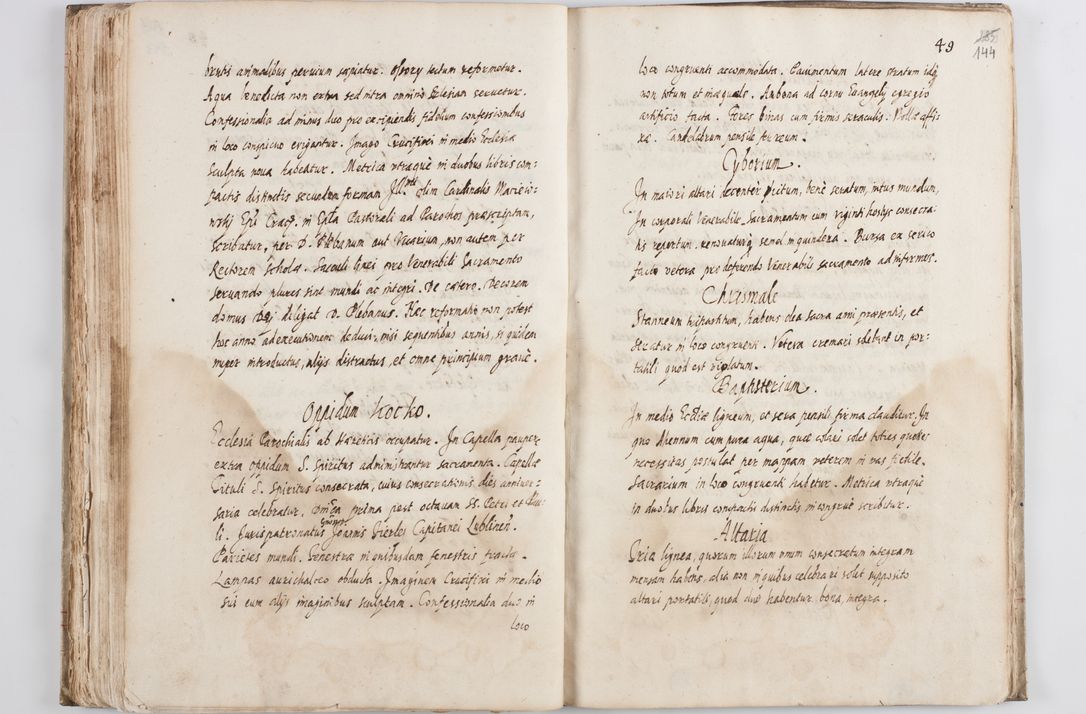 brutis animalibus pervium sepiatur. Ostory tectum reformetur.
Aqua benedicta non extra sed intra omnino Ecclesiam servetur.
Confessionalia ad minus duo pro excipiendis fidelium confessionibus
in loco conspicuo erigantur. Imago Crucifixi in medio Ecclesiæ
sculpta noua habeatur. Metrica utraquè in duobus libris con:
pactis distinctis secundum formam Ill.mi olim Cardinalis Macieio:
wskij Epi Crac. in Epla Pastorali ad Parochos præscriptam,
scribatur, per D. Plebanum aut Vicarium, non autem per
Rectorem scholæ. Sacculi linei pro Venerabili Sacramento
seruando plures sint mundi ac integri. De cætero. Decorem
domus Dei diligat D. Plebanus. Hæc reformatio non potest
hoc anno ad executionem deduci, nisi sequentibus annis, si quidem
nuper introductus, alijs distractus, et omne principium graue.
Oppidum Kocko.
Ecclesia Parochialis ab Hæreticis occupatur. In Capella pauper
extra oppidum S. Spiritus administrantur sacramenta. Capellæ
Tituli S. Spiritus consecrata, cuius consecrationis dies anniuer:
saria celebratur, Dnica prima post octauam SS. Petri et Pau:
li. Iurispatronatus Generosi Joannis Firlei Capitanei Lublinen.
Parietes mundi. Fenestræ in quibusdam fenestris fractæ.
Lampas aurichalceo obducta. Imaginem Crucifixi in medio
sui cum alijs imaginibus sculptam. Confessionalia duo in
loco
49
144
loco congruenti accommodata. Pauimentum latere stratum idq
non totum et inæquale. Ambona ad cornu Euangelij egregio
artificio facta. Fores binas cum firmis seraculis. Vallæ affi:
xæ. Candelabrum pensile ferreum.
Cyborium.
In maiori altari decenter pictum, benè seratum, intus mundum,
In corporali Venerabile Sacramentum cum viginti hostijs consecra:
tis repertum. renouaturq semel in quindena. Bursa ex serico
facta vetera pro deferendo Venerabili sacramento ad infirmos.
Chrismale
Stanneum tripartitum, habens olea sacra anni præsentis, et
seruatur in loco congruenti. Vetera cremari solebant in por:
tatili quod est violatum.
Baptisterium.
In medio Ecclæ ligneum, et sera pensili firma clauditur. In
quo Ahenum cum pura aqua, quæ colari solet toties quoties
necessitas postulat per mappam veterem in vas fictile.
Sacrarium in loco congruenti habetur. Metrica utraquè
in duobus libris compactis distinctis incongruè scribitur.
Altaria
Tria lignea, quorum illorum unum consecratum integram
mensam habens, alia non in quibus celebrari solet supposito
altari portatili, quod duo habentur bona, integra.